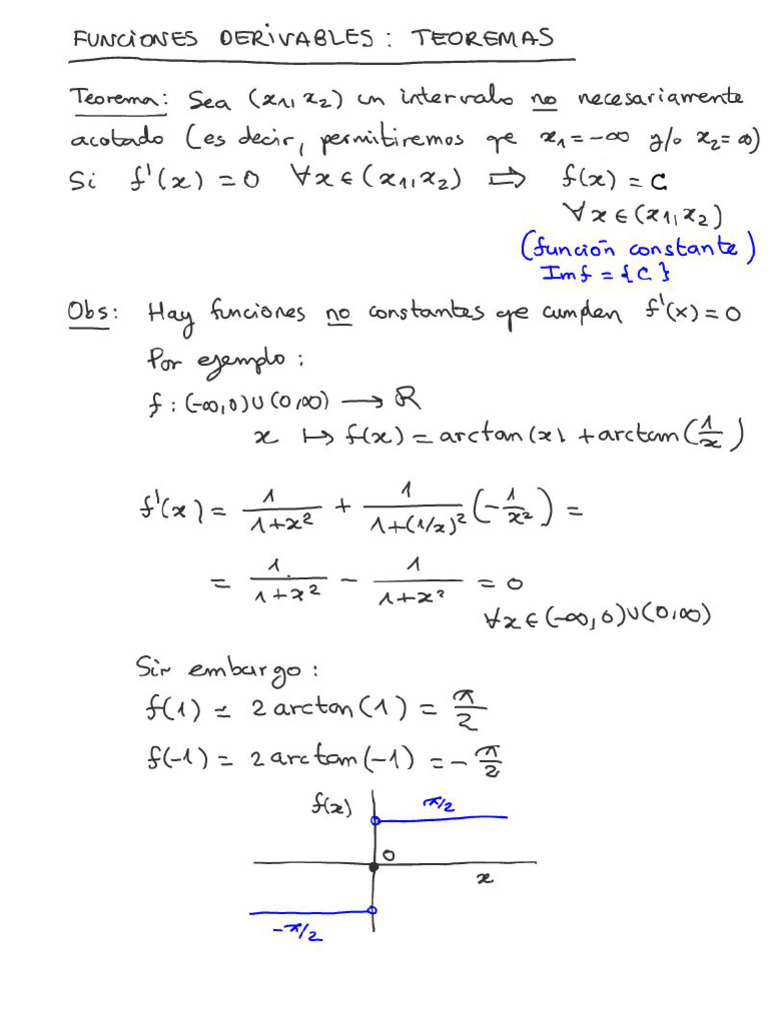 FUNCIONES DERIVABLES: TEOREMAS
Teorema: Sea (x₁, x₂) un intervalo no necesariamente
acotado (es decir, permitiremos qe x₁=-∞ y/o x₂=∞)
Si f'(x) = 0 ∀x∈(x₁, x₂) ⇒ f(x) = C
∀x∈(x₁, x₂)
(función constante)
Im f = {C}
Obs: Hay funciones no constantes qe cumplen f'(x)=0
Por ejemplo:
f: (-∞,0)∪(0,∞) → ℝ
x ↦ f(x) = arctan(x) + arctan(1/x)
f'(x) = 1/(1+x²) + 1/(1+(1/x)²) (-1/x²) =
= 1/(1+x²) - 1/(1+x²) = 0
∀x∈(-∞,0)∪(0,∞)
Sin embargo:
f(1) = 2 arctan(1) = π/2
f(-1) = 2 arctan(-1) = -π/2
f(x) π/2
0
x
-π/2